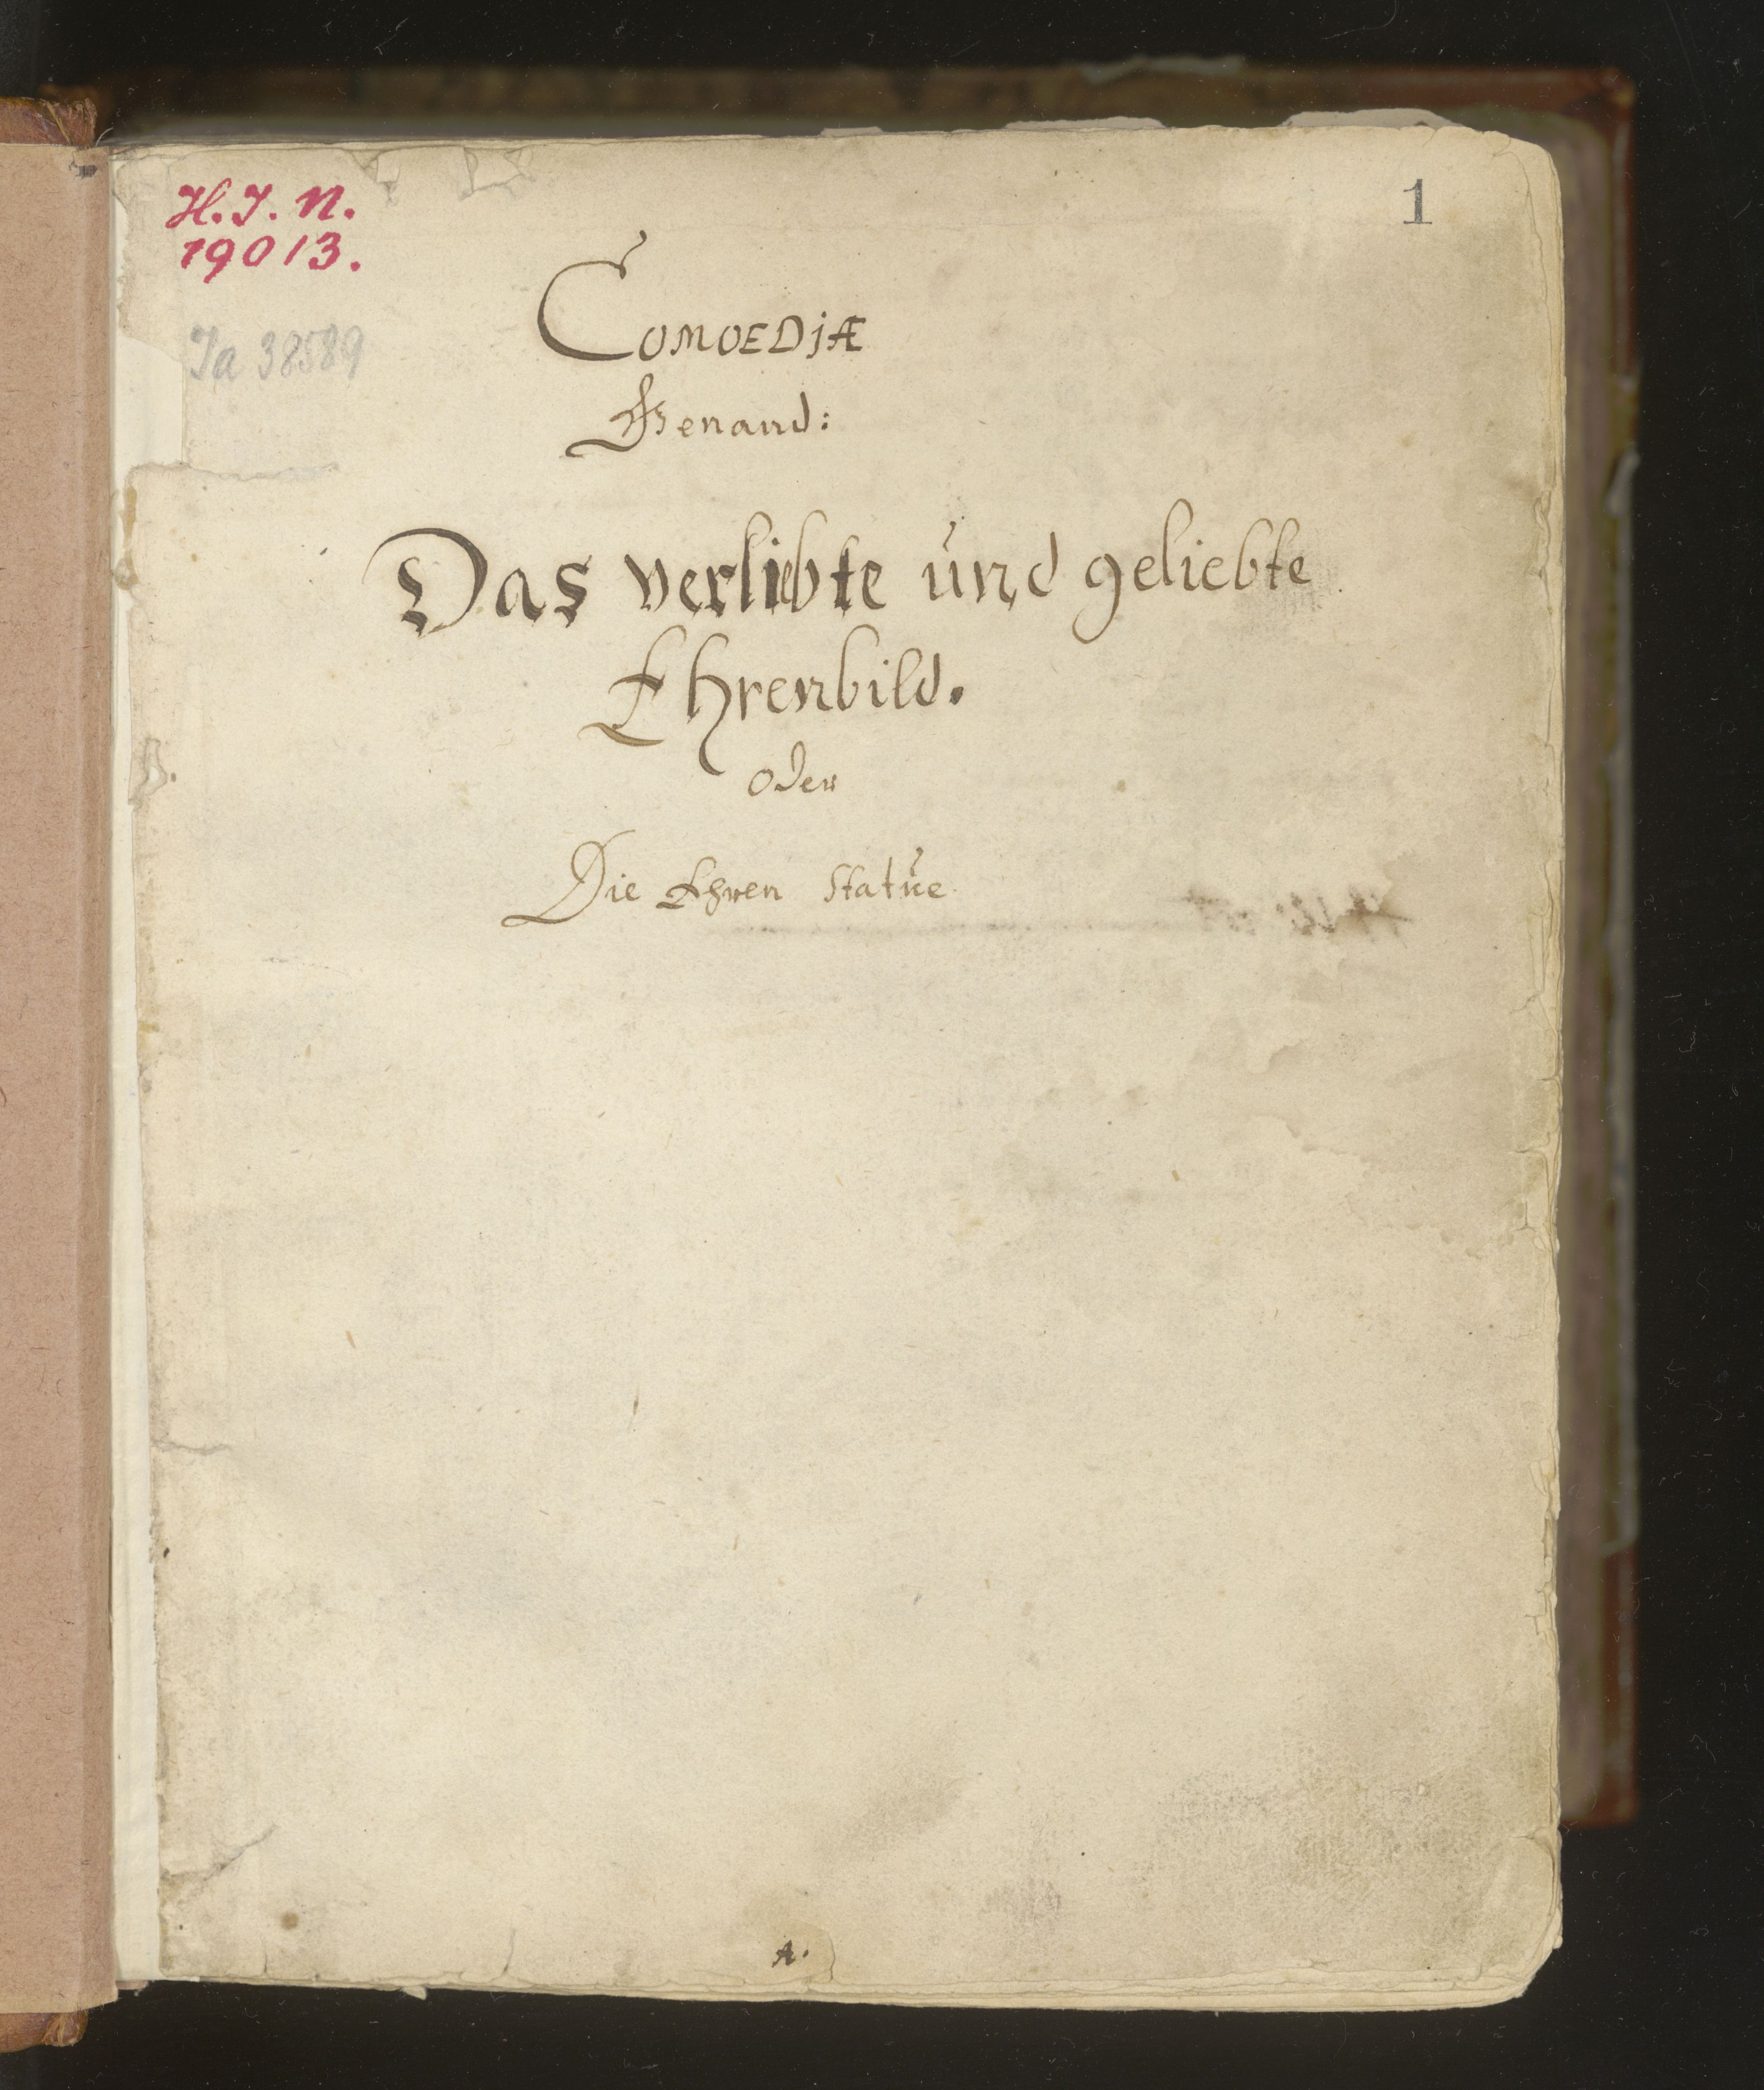 H.I.N.
19013.
1
Ja 38589
COMOEDIÆ
Genand:
Das verliebte und geliebte
Ehrenbild.
oder
Die Ehren Statue
A.